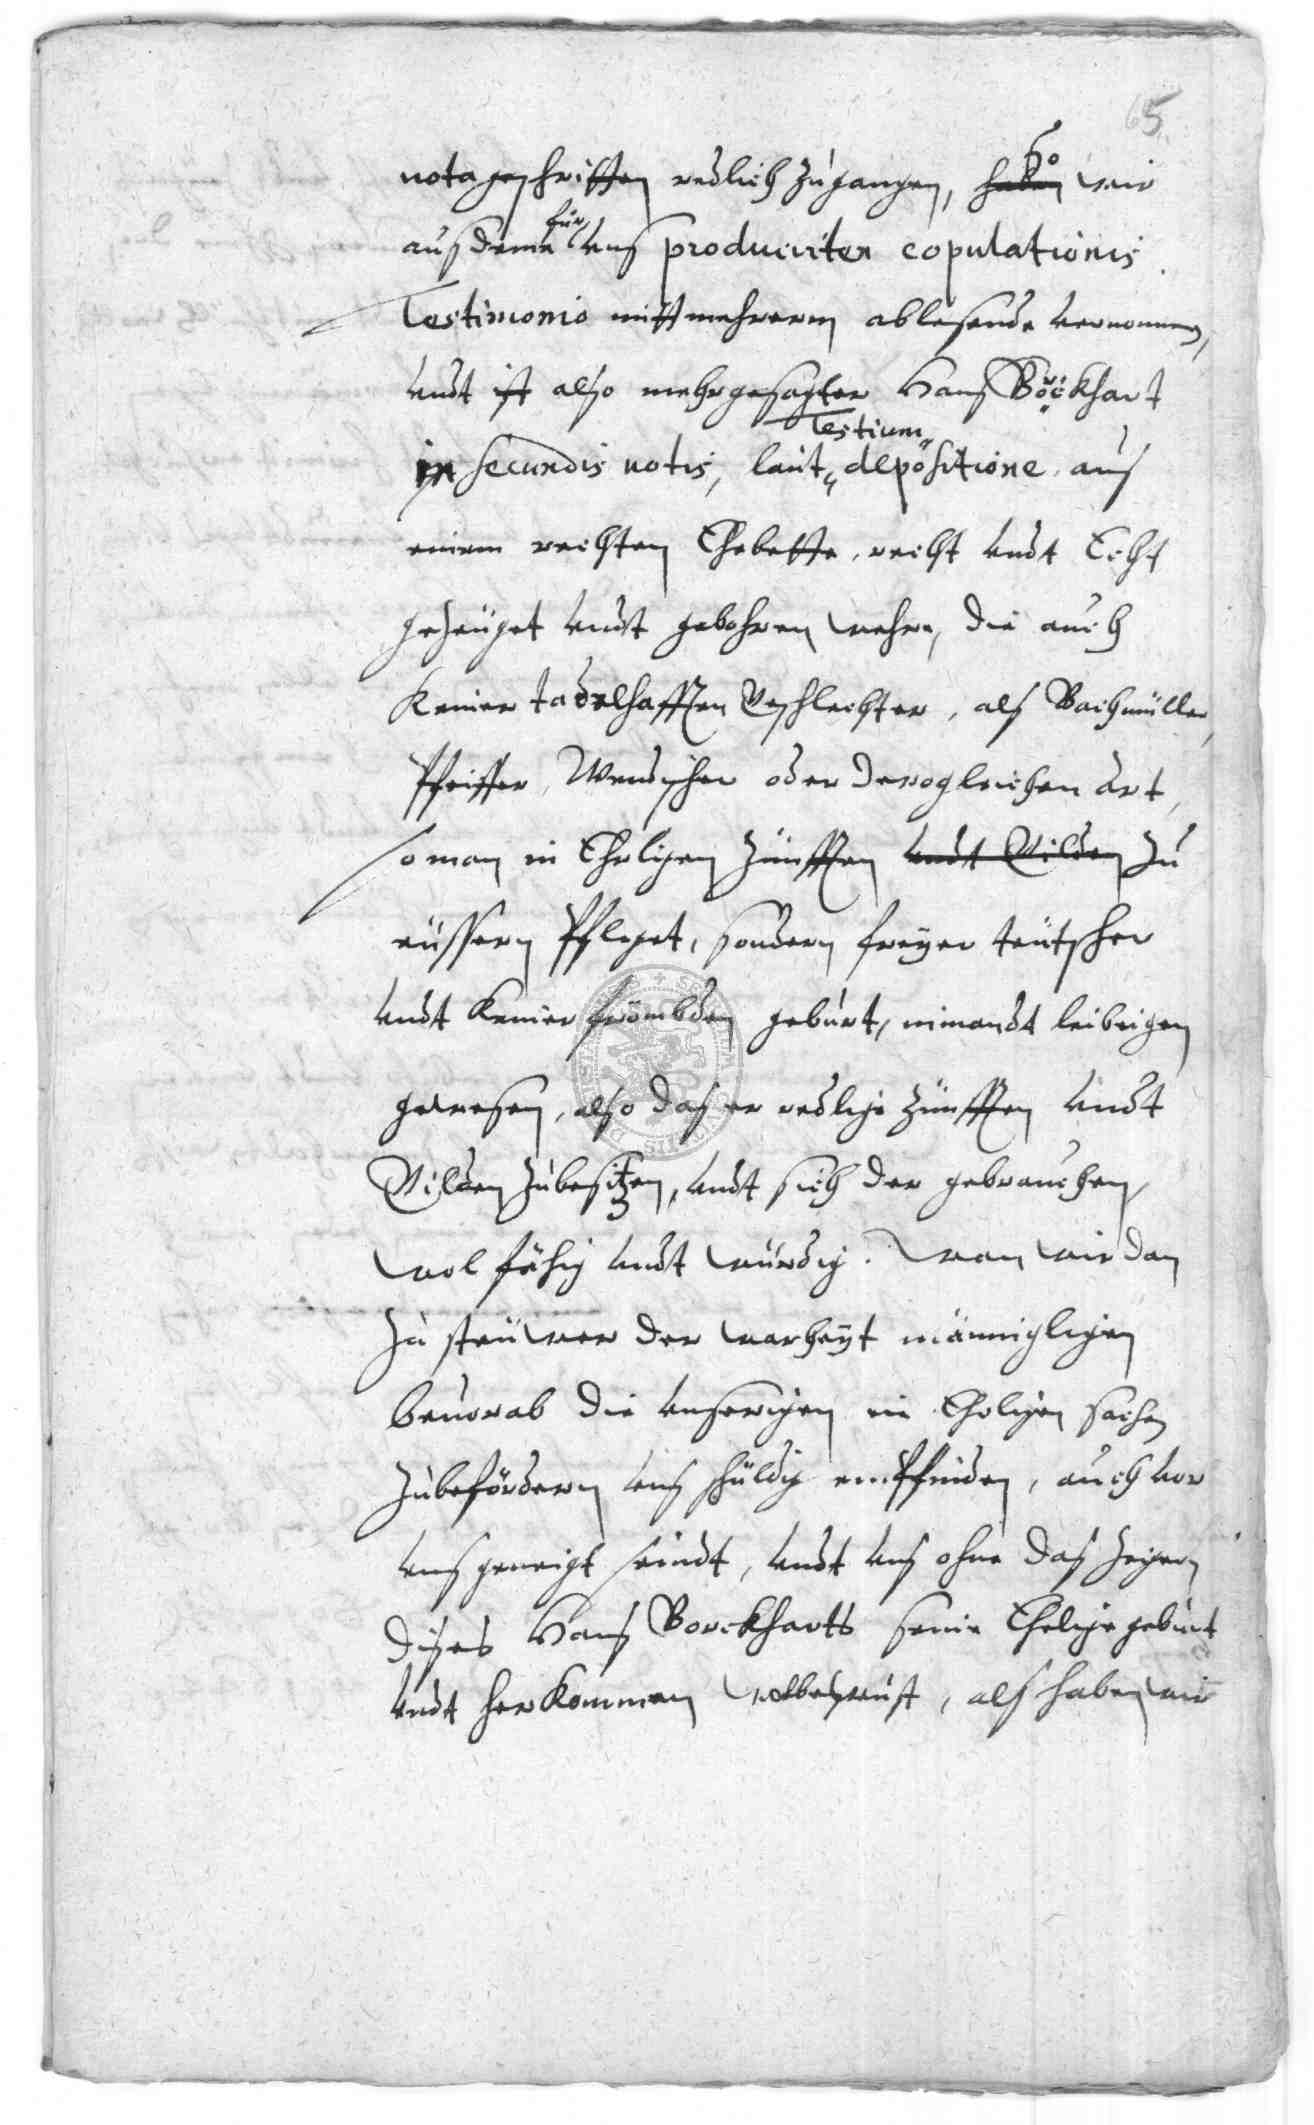 65
nota geschritten redlich zugangen, haben so wir
aus deme für uns producirten copulationis
Testimonio mitt mehrerm ablesende vernommen,
undt ist also mehrgesagter Hans Borckhart
in secundis notis, laut Testium depositione aus
einem rechten Ehebette, recht undt Echt
gezeüget undt gebohren wehre, die auch
Keiner tadelhafften Geschlechter, als Bachmüller,
Pfeiffer, Wendischer oder derogleichen art,
so man in Ehrligen Zünfften undt Gilden zu
eüssern Pfleget, sondern freyer teütscher
undt Keiner frömbden geburt, nimandt leibeigen
gewesen, also das er redlige Zünfften undt
Gilden zubesitzen, undt sich der gebrauchen,
wol fähig undt würdig. Wan wir dan
zu steüwer der warheyt männigligen
bevorab die unserigen in Ehrligen sachen
zubefördern uns schüldig empfinden, auch vor
uns geneigt seindt, undt uns ohne das zeigern
dises Hans Borckharts seine Ehelige geburt
undt herkommen wolbewust, als haben wir